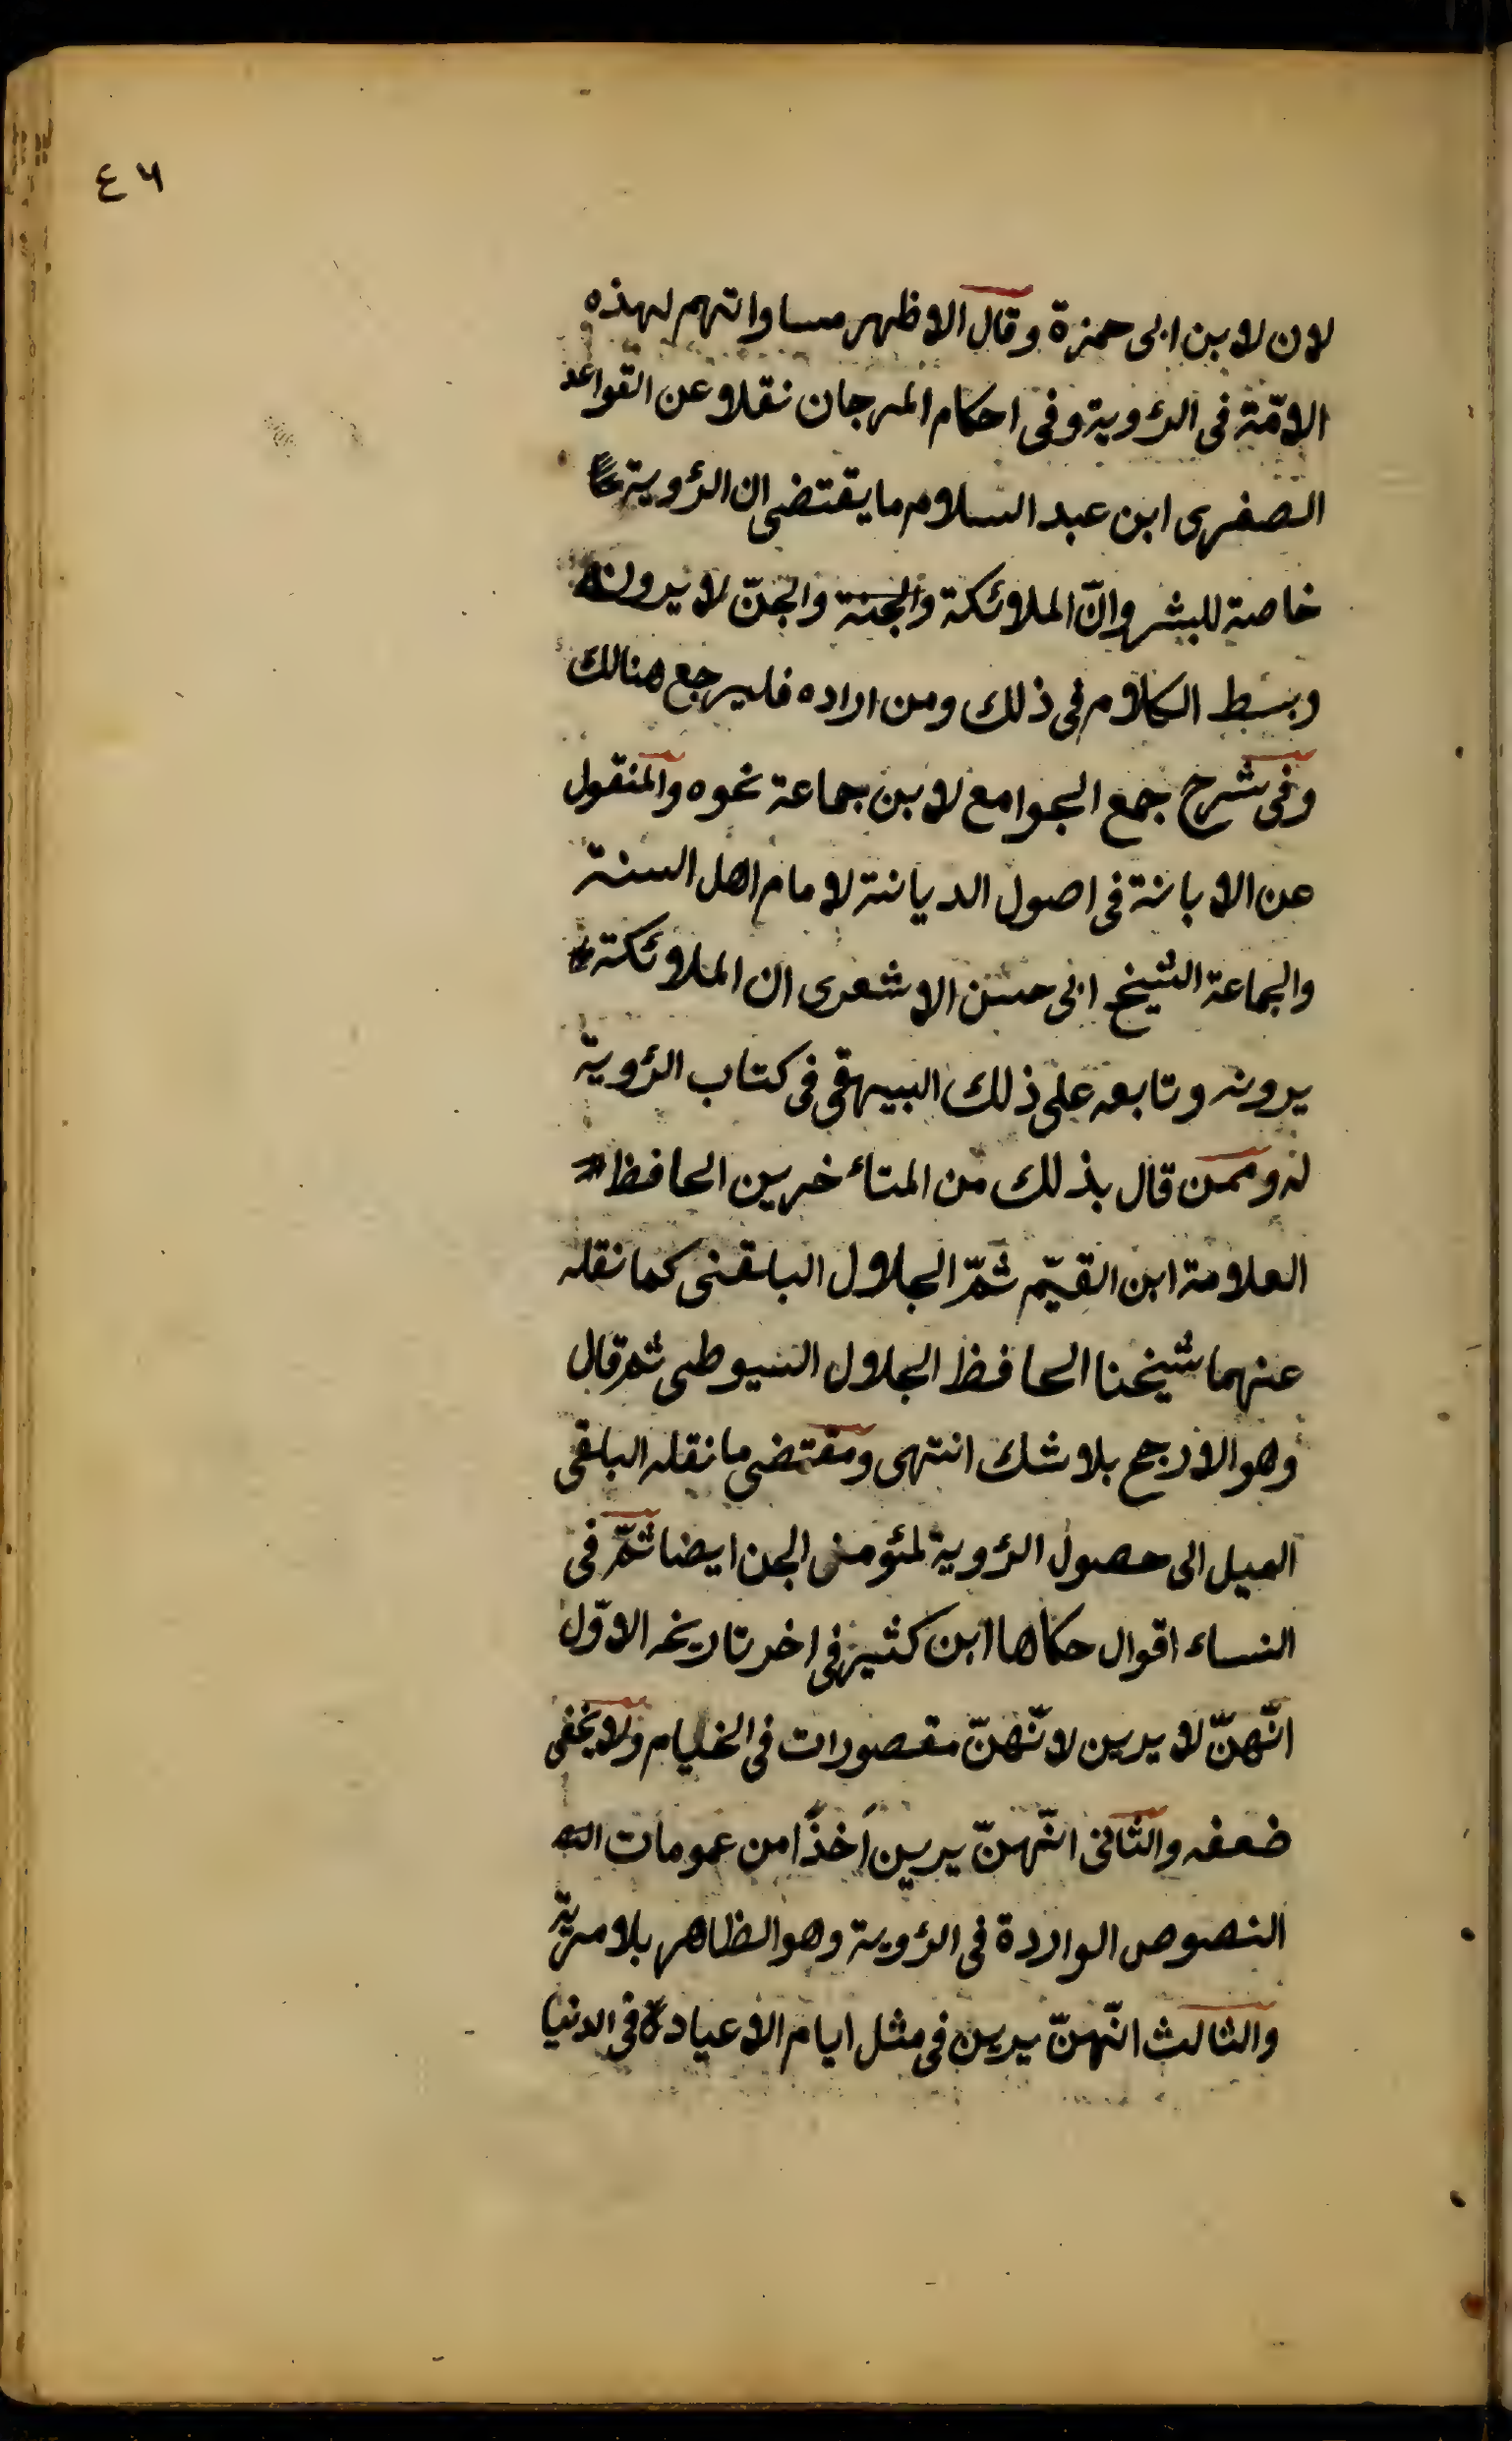 ٤٦
لان لابن ابى حمزة وقال الاظهر مساواتهم لهذه
الامّة فى الرؤية وفى احكام المرجان نقلا عن القواعد
الصغرى ابن عبد السلام ما يقتضى ان الرؤية
خاصة للبشر وانّ الملائكة والجنة والجنّ لا يرونه
وبسط الكلام فى ذلك ومن اراده فليرجع هنالك
وفى شرح جمع الجوامع لابن جماعة نحوه والمنقول
عن الابانة فى اصول الديانة لامام اهل السنة
والجماعة الشيخ ابى حسن الاشعرى ان الملائكة
يرونه وتابعه على ذلك البيهقى فى كتاب الرؤية
له وممن قال بذلك من المتأخرين الحافظ
العلامة ابن القيّم ثمّ الجلال البلقنى كما نقله
عنهما شيخنا الحافظ الجلال السيوطى ثم قال
وهو الارجح بلا شك انتهى ومقتضى ما نقله البلقى
الميل الى حصول الرؤية لمئومنى الجن ايضا ثمّ فى
النساء اقوال حكاها ابن كثير فى اخر تاريخه الاوّل
انّهنّ لا يرين لانّهنّ مقصورات فى الخيام ولا يخفى
ضعفه والثانى انّهنّ يرين اخذًا من عمومات
النصوص الواردة فى الرؤية وهو الظاهر بلا مرية
والثالث انّهنّ يرين فى مثل ايام الاعياد فى الدنيا